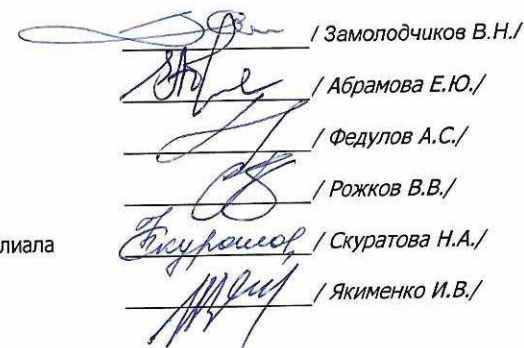 / Замолодчиков В.Н./
/ Абрамова Е.Ю./
/ Федулов А.С./
/ Рожков В.В./
лиала / Скуратова Н.А./
/ Якименко И.В./